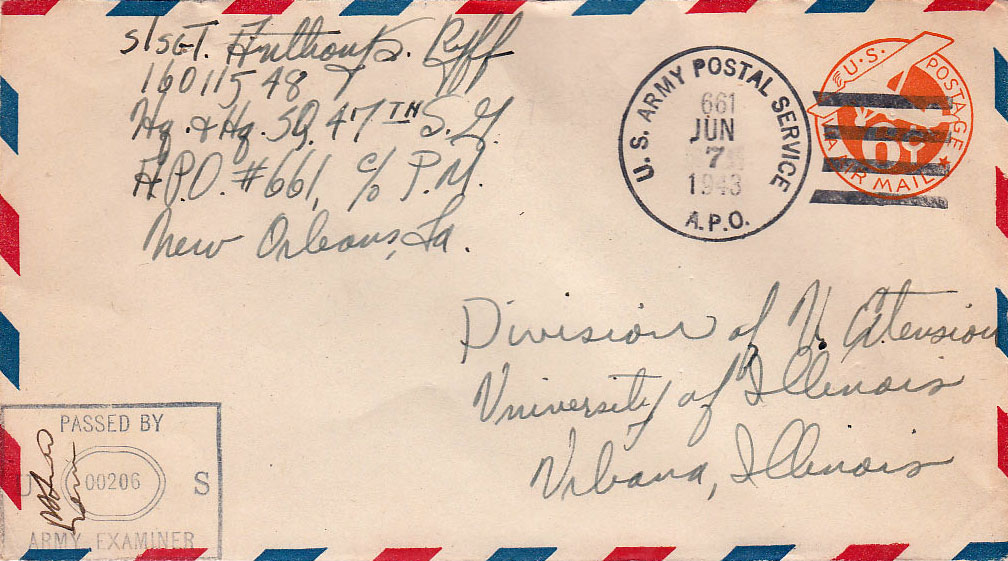 S/SGT. Anthony S. Ryff
16011548
Hq. & Hq. SQ. 47TH S. G.
A.P.O. #661, c/o P.M.
New Orleans, La.
U.S. ARMY POSTAL SERVICE
661
JUN
7
1943
A.P.O.
U.S. POSTAGE
6¢
VIA AIR MAIL
Division of U. Extension
University of Illinois
Urbana, Illinois
PASSED BY
U 00206 S
ARMY EXAMINER